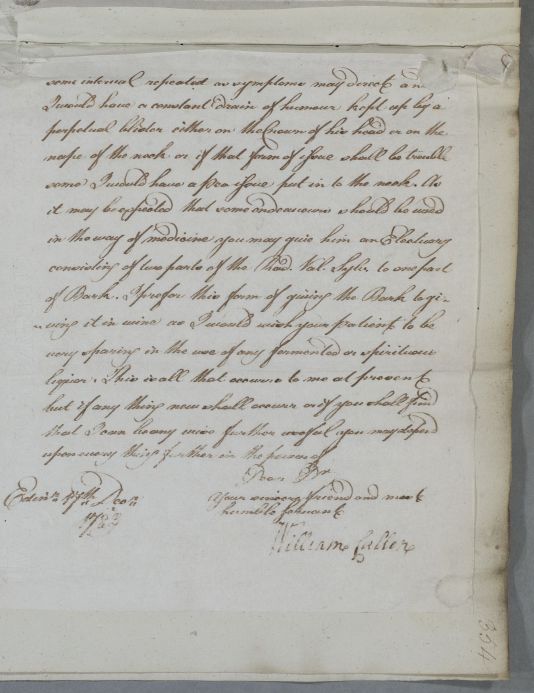 some interval repeated as symptoms may direct and
I would have a constant drain of humour kept up by a
perpetual blister either on the Crown of his head or on the
nape of the neck or if that form of issue shall be trouble
some I would have a pea issue put in to the neck. As
it may be expected that some endeavours should be used
in the way of medicine you may give him an Electuary
consisting of two parts of the Rad. Val. Sylv. to one part
of Bark. I prefer this form of giving the Bark to gi-
-ving it in wine as I would wish your patient to be
very sparing in the use of any fermented or spirituous
liquor. This is all that occurs to me at present
but if any thing new shall occurr or if you shall find
that I can be any wise further useful you may depend
upon every thing further in the power of
Dear Dr.
Your sincere friend and most
humble servant
Edinr. 17th Decr.
William Cullen
354